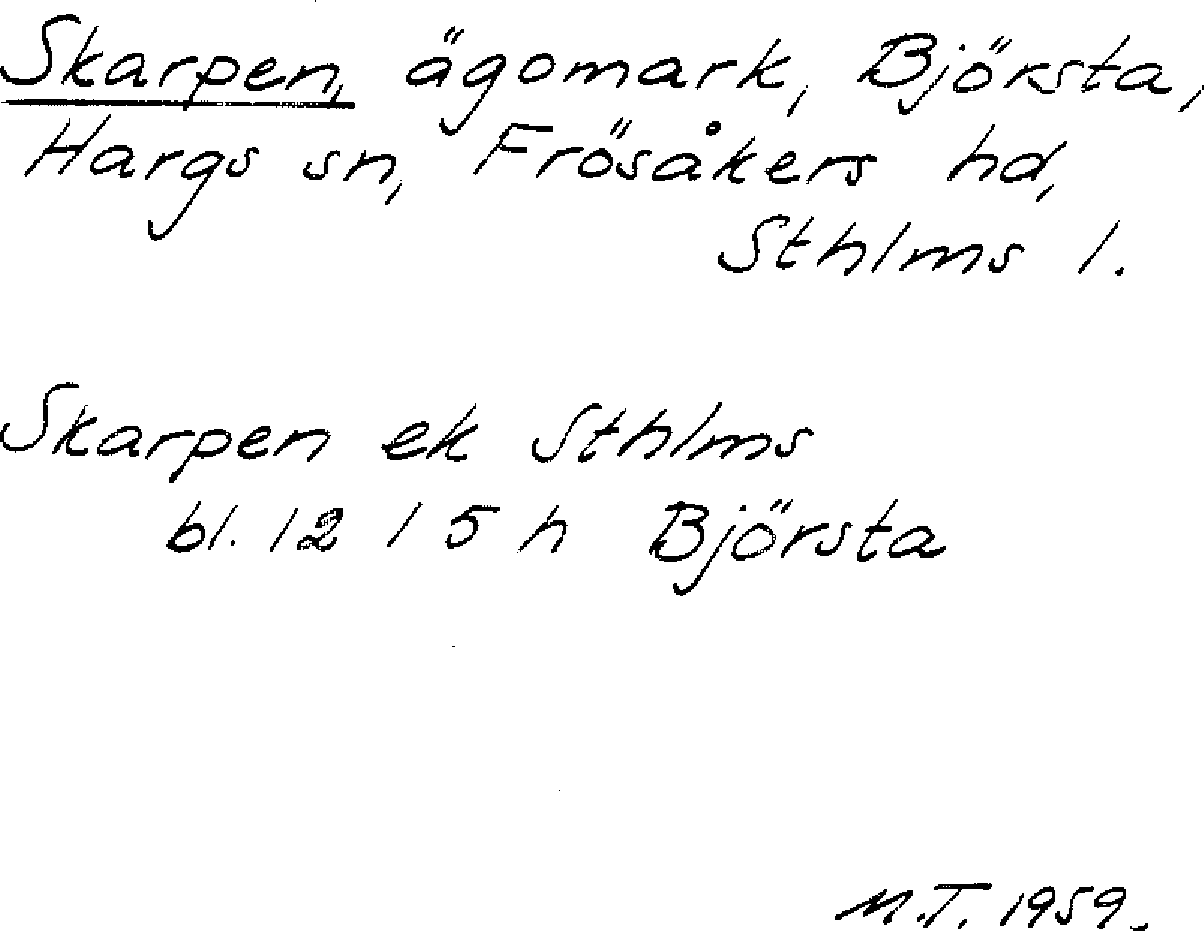 Skarpen, ägomark, Björsta,
Hargs sn, Frösåkers hd,
Sthlms l.
Skarpen ek Sthlms
bl. 12 I 5 h Björsta
M.T. 1959.